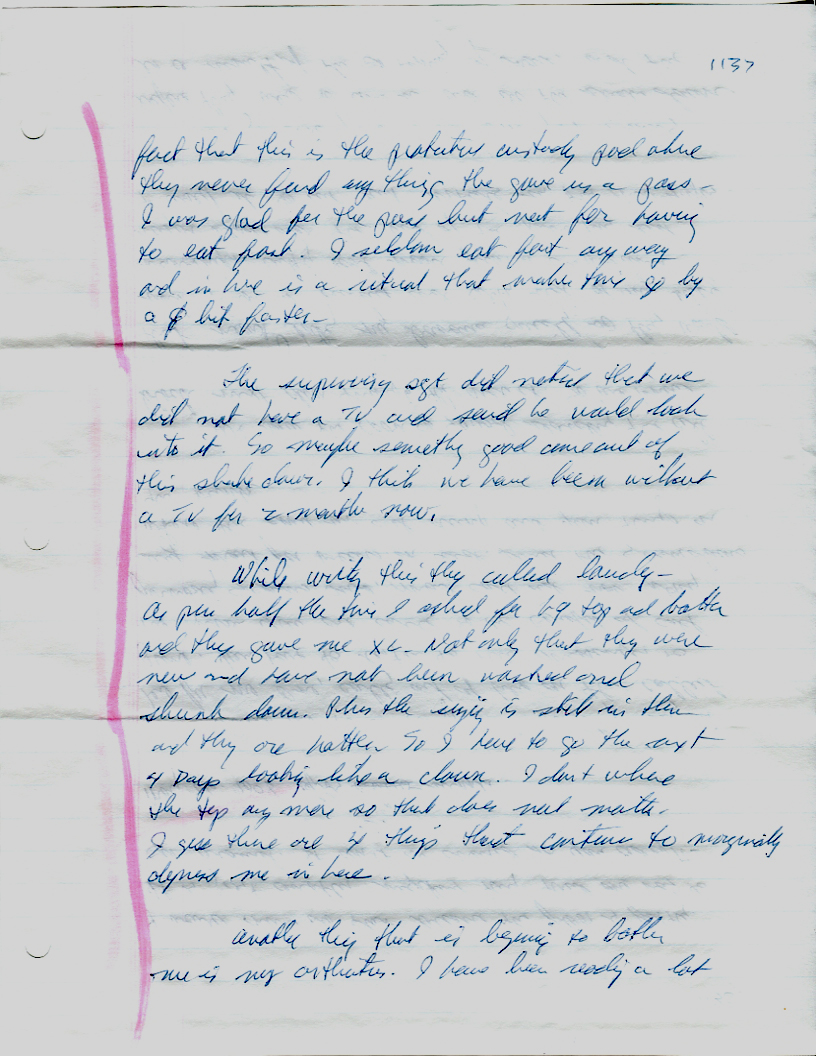 1137
fact that this is the protective custody pod alone
they never find any thing the gave us a pass –
I was glad for the pass but not for having
to eat fast. I seldom eat fast any way
and in here is a ritual that makes time go by
a bit faster –
The supervising sgt did notice that we
did not have a TV and said he would look
into it. So maybe somethg good come out of
this shake down. I think we have been without
a TV for 2 months now.
While writg this they called laundy –
As per half the time I asked for big top ad bottom
and they gave me XL. Not only that they were
new and have not been washed and
shrunk down. Plus the sizing is still in them
and they are hotter. So I have to go the next
4 Days looking like a clown. I don't where
the top any more so that does not matter.
I gess there are 4 things that continue to marginally
depress me in here.
Another thig that is beginnig to bother
me is my arthritus. I have been readig a lot